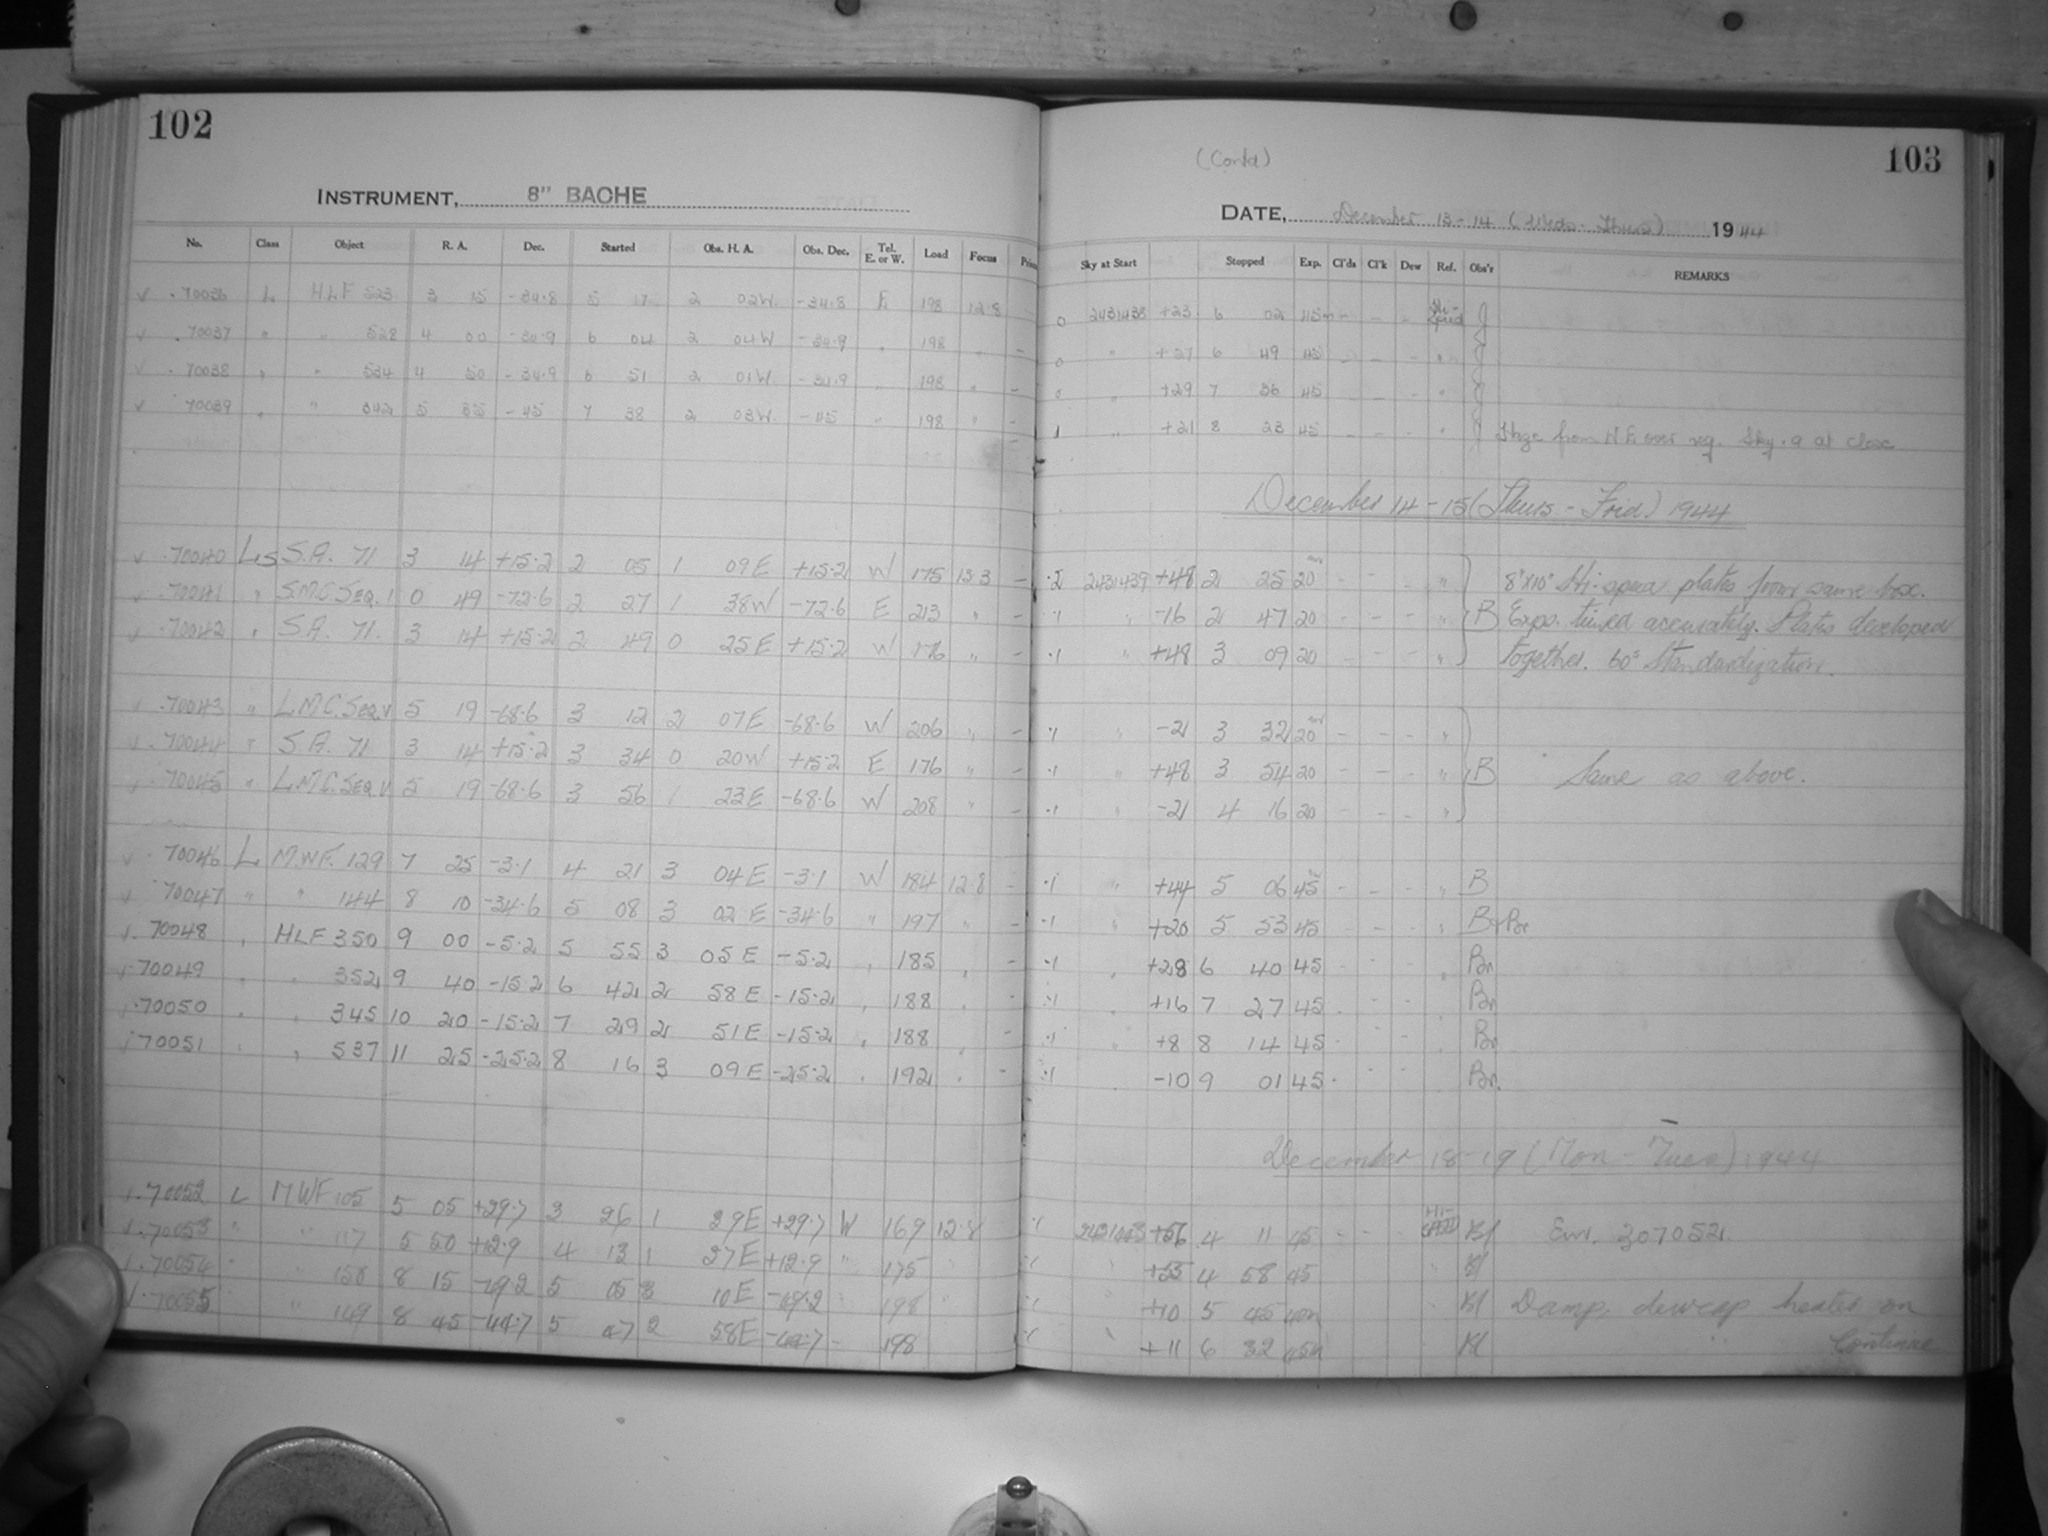 102
INSTRUMENT, 8" BACHE
No. Class Object R. A. Dec. Started Obs. H. A. Obs. Dec. Tel. E. or W. Load Focus
70036 L HLF 523 3 15 -34.8 5 17 2 02W -34.8 E 198 12.8
70037 " " 528 4 00 -34.9 6 04 2 04W -34.9 " 198 " -
70038 " " 534 4 50 -34.9 6 51 2 01W -34.9 " 198 " -
70039 " " 5 35 -45 7 38 2 03W -45 " 198 " -
70040 LS S.A. 71 3 14 +15.2 2 05 1 09E +15.2 W 175 13.3 -
70041 " S.M.C. SEQ. 1 0 49 -72.6 2 27 1 38W -72.6 E 213 " -
70042 " S.A. 71. 3 14 +15.2 2 49 0 25E +15.2 W 176 " -
70043 " L.M.C. SEQ. V 5 19 -68.6 3 12 2 07E -68.6 W 206 " -
70044 " S.A. 71 3 14 +15.2 3 34 0 20W +15.2 E 176 " -
70045 " L.M.C. SEQ. V 5 19 -68.6 3 56 1 23E -68.6 W 208 " -
70046 L M.W.F. 129 7 25 -3.1 4 21 3 04E -3.1 W 184 12.8 -
70047 " " 144 8 10 -34.6 5 08 3 02E -34.6 " 197 " -
70048 " HLF 350 9 00 -5.2 5 55 3 05E -5.2 " 185 "
70049 " " 352 9 40 -15.2 6 42 2 58E -15.2 " 188 "
70050 " " 345 10 20 -15.2 7 29 2 51E -15.2 " 188 " -
70051 " " 537 11 25 -25.2 8 16 3 09E -25.2 " 192 " -
70052 L MWF 105 5 05 +29.7 3 26 1 39E +29.7 W 169 12.8
70053 " " 117 5 50 +12.9 4 13 1 37E +12.9 " 175
70054 " 8 15 5 3 10E " 198
70055 " 149 8 45 -44.7 5 47 2 58E -44.7 198
(Contd) 103
DATE, December 13-14 (Weds.-Thurs) 1944
Sky at Start Stopped Exp. Cl'ds Cl'k Dew Ref. Obs'r REMARKS
0 2431438 +23 6 02 45m - - - Hi-Speed J
0 " +27 6 49 45 - - - " J
0 " +29 7 36 45 - - - " J
1 " +21 8 23 45 - - - " J Haze from N E over reg. Sky .9 at close
December 14-15 (Thurs-Frid) 1944
.2 2431439 +48 2 25 20m - - - " 8"x10" Hi-speed plates from same box.
.1 " -16 2 47 20 - - - " B Exps. timed accurately. Plates developed
.1 " +48 3 09 20 - - - " together. 60s Standardization.
.1 " -21 3 32 20m - - - "
.1 " +48 3 54 20 - - - " B Same as above.
.1 " -21 4 16 20 - - - "
.1 " +44 5 06 45m - - - " B
.1 " +20 5 53 45 - - - " B+Br
.1 " +28 6 40 45 - - - " Br
.1 " +16 7 27 45 Br
.1 " +8 8 14 45 Br
.1 -10 9 01 45 Br.
December 18-19 (Mon-Tues) 1944
+56 4 11 45 - HI-SPEED Bl Em. 3070521
+55 4 58 45 Bl
+10 5 45 Bl Damp, dewcap heater on
+11 6 32 45m Bl Continue